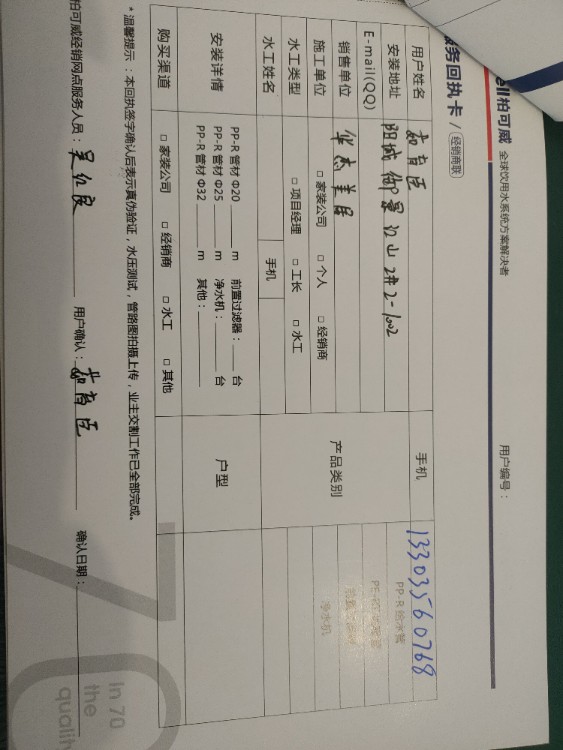 ell柏可威 全球饮用水系统方案解决者 用户编号：
服务回执卡 / 经销商联
用户姓名 手机 13303560768
安装地址 阳城 御景江山 2#2-1002
E-mail(QQ) 产品类别 PP-R 给水管
销售单位 华杰美居
施工单位 □ 家装公司 □ 个人 □ 经销商 净水机
水工类型 □ 项目经理 □ 工长 □ 水工
水工姓名 手机
安装详情 户型
PP-R 管材 Φ20 ____ m 前置过滤器：____ 台
PP-R 管材 Φ25 ____ m 净水机：____ 台
PP-R 管材 Φ32 ____ m 其他：____
购买渠道 □ 家装公司 □ 经销商 □ 水工 □ 其他
* 温馨提示：本回执签字确认后表示真伪验证，水压测试，管路图拍摄上传，业主交割工作已全部完成。
柏可威经销网点服务人员： 用户确认： 确认日期：
70
in 70
the
qualit